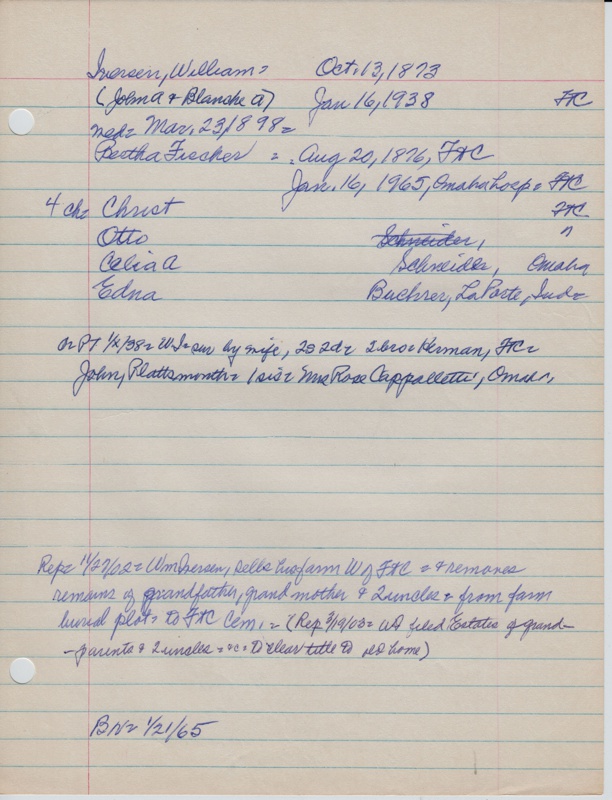 Iversen, William = Oct. 13, 1873
(John A + Blanche A) Jan 16, 1938 FtC
med = Mar. 23, 1898 =
Bertha Fischer = . Aug 20, 1876, FtC
Jan. 16, 1965, Omaha hosp = FtC
4 ch = Christ FtC
Otto Schneider, "
Celia A Schneider, Omaha
Edna Buehrer, LaPorte, Ind =
1/2/38 = WI = sur by wife, 2s 2d = 2 bro = Herman, FtC =
John, Plattsmouth = 1 sis = Mrs Rose Cappelletti, Omaha,
Rep = 11/27/02 = Wm Iversen, sells his farm W of FtC = + removes
remains of grandfather, grand mother + 2 uncles = from farm
burial plot = to FtC Cem. = (Rep 3/19/03 = filed Estates of grand-
-parents + 2 uncles = to clear title to home)
BN = 1/21/65